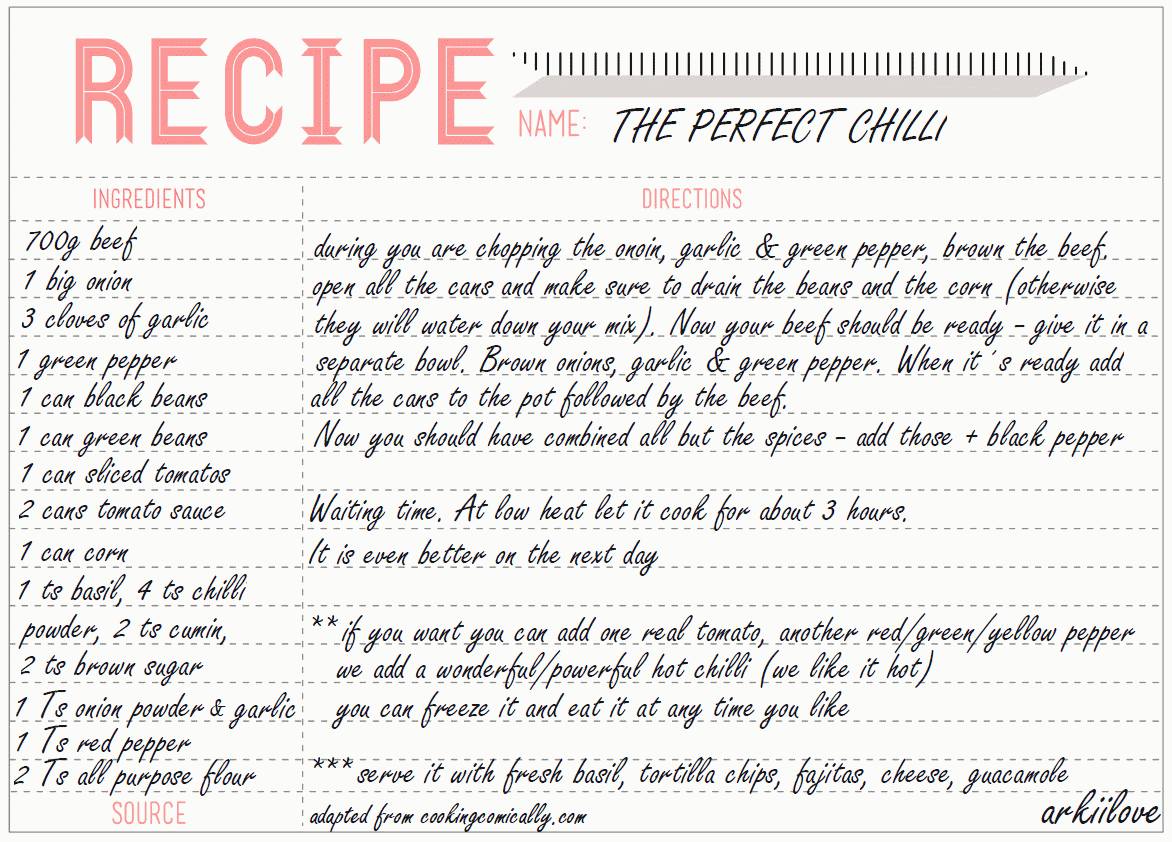 RECIPE
NAME: THE PERFECT CHILLI
INGREDIENTS
700g beef
1 big onion
3 cloves of garlic
1 green pepper
1 can black beans
1 can green beans
1 can sliced tomatos
2 cans tomato sauce
1 can corn
1 ts basil, 4 ts chilli
powder, 2 ts cumin,
2 ts brown sugar
1 Ts onion powder & garlic
1 Ts red pepper
2 Ts all purpose flour
DIRECTIONS
during you are chopping the onoin, garlic & green pepper, brown the beef.
open all the cans and make sure to drain the beans and the corn (otherwise
they will water down your mix). Now your beef should be ready - give it in a
separate bowl. Brown onions, garlic & green pepper. When it´s ready add
all the cans to the pot followed by the beef.
Now you should have combined all but the spices - add those + black pepper
Waiting time. At low heat let it cook for about 3 hours.
It is even better on the next day
**if you want you can add one real tomato, another red/green/yellow pepper
we add a wonderful/powerful hot chilli (we like it hot)
you can freeze it and eat it at any time you like
***serve it with fresh basil, tortilla chips, fajitas, cheese, guacamole
SOURCE
adapted from cookingcomically.com
arkiilove